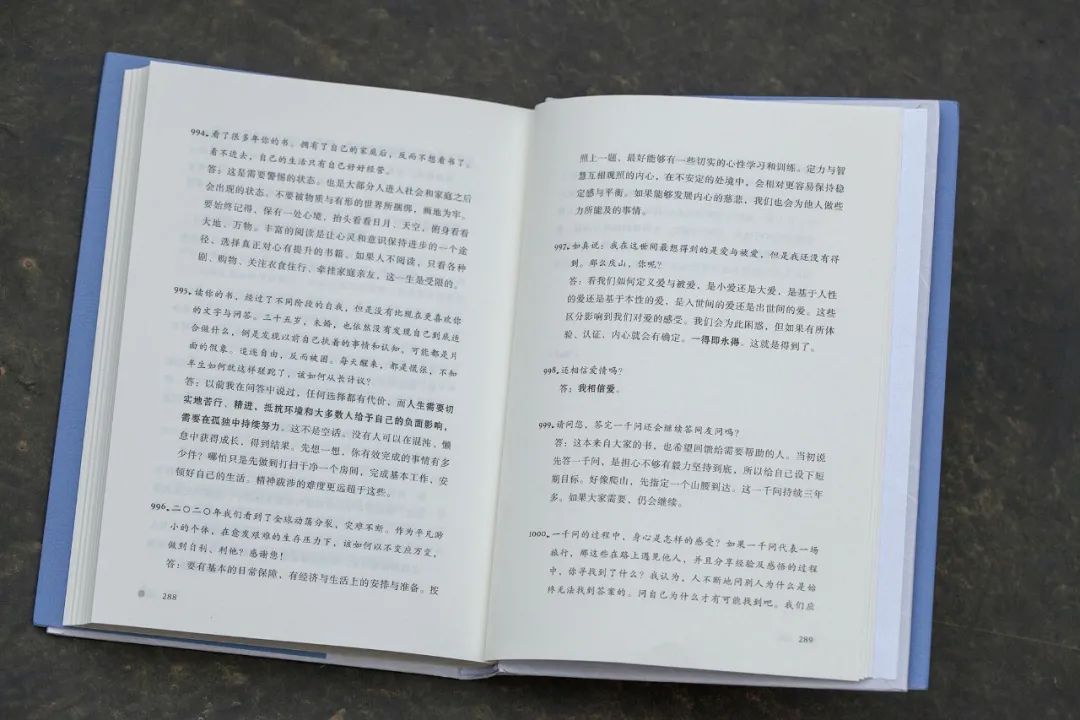 994.看了很多年你的书。拥有了自己的家庭后，反而不想看书了。
看不进去，自己的生活只有自己好好经营。
答：这是需要警惕的状态。也是大部分人进入社会和家庭之后
会出现的状态。不要被物质与有形的世界所捆绑，画地为牢。
要始终记得，保有一处心境，抬头看看日月、天空，俯身看看
大地、万物。丰富的阅读是让心灵和意识保持进步的一个途
径、选择真正对心有提升的书籍。如果人不阅读，只看各种
剧、购物、关注衣食住行、牵挂家庭亲友，这一生是受限的。
995.读你的书，经过了不同阶段的自我，但是没有比现在更喜欢你
的文字与问答。二十五岁，未婚，也依然没有发现自己到底适
合做什么，倒是发现以前自己执着的事情和认知，可能都是片
面的假象。追逐自由，反而被困。每天醒来，都是慌张，不知
半生如何就这样蹉跎了，该如何从长计议？
答：以前我在问答中说过，任何选择都有代价，而人生需要切
实地苦行、精进，抵抗环境和大多数人给予自己的负面影响，
需要在孤独中持续努力。这不是空话。没有人可以在混沌、懒
怠中获得成长，得到结果。先想一想，你有效完成的事情有多
少件？哪怕只是先做到打扫干净一个房间，完成基本工作、安
顿好自己的生活。精神跋涉的难度更远超于这些。
996.二〇二〇年我们看到了全球动荡分裂，灾难不断。作为平凡渺
小的个体，在愈发艰难的生存压力下，该如何以不变应万变，
做到自利、利他？感谢您！
答：要有基本的日常保障，有经济与生活上的安排与准备。按
288
照上一题，最好能够有一些切实的心性学习和训练。定力与智
慧互相观照的内心，在不安定的处境中，会相对更容易保持稳
定感与平衡。如果能够发展内心的慈悲，我们也会为他人做些
力所能及的事情。
997.如真说：我在这世间最想得到的是爱与被爱，但是我还没有得
到。那么庆山，你呢？
答：看我们如何定义爱与被爱，是小爱还是大爱，是基于人性
的爱还是基于本性的爱，是入世间的爱还是出世间的爱。这些
区分影响到我们对爱的感受。我们会为此困惑，但如果有所体
验、认证，内心就会有确定。一得即永得。这就是得到了。
998.还相信爱情吗？
答：我相信爱。
999.请问您，答完一千问还会继续答网友问吗？
答：这本来自大家的书，也希望回馈给需要帮助的人。当初说
先答一千问，是担心不够有毅力坚持到底，所以给自己设下短
期目标。好像爬山，先指定一个山腰到达。这一千问持续三年
多。如果大家需要，仍会继续。
1000.一千问的过程中，身心是怎样的感受？如果一千问代表一场
旅行，那这些在路上遇见他人，并且分享经验及感悟的过程
中，你寻找到了什么？我认为，人不断地问别人为什么是始
终无法找到答案的。问自己为什么才有可能找到吧。我们应
289